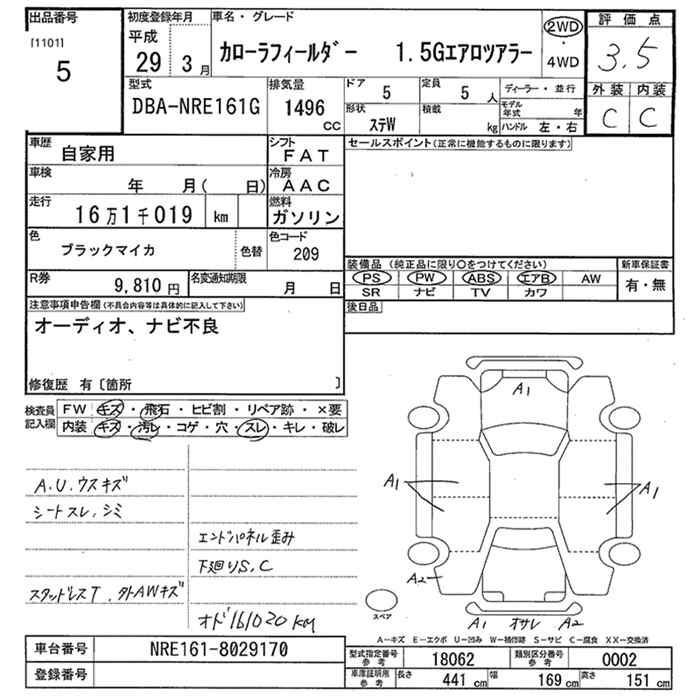 出品番号
[1101]
5
初度登録年月
平成
29 3月
車名・グレード
カローラフィールダー 1.5Gエアロツアラー
2WD
・
4WD
評価点
3.5
外装 内装
C C
型式
DBA-NRE161G
排気量
1496
CC
ドア
5
定員
5 人
形状
ステW
積載
kg
ディーラー・並行
モデル年式 年
ハンドル 左・右
車歴
自家用
シフト
FAT
セールスポイント(正常に機能するものに限ります)
車検
年 月( 日)
冷房
AAC
走行
16万1千019 km
燃料
ガソリン
色
ブラックマイカ
色替
色コード
209
装備品 (純正品に限り○をつけてください)
新車保証書
PS PW ABS エアB AW
SR ナビ TV カワ
有・無
R券
9,810円
名変通知期限
月 日
後日品
注意事項申告欄(不具合内容等は具体的に記入して下さい)
オーディオ、ナビ不良
修復歴 有〔箇所 〕
検査員記入欄
FW キズ・飛石・ヒビ割・リペア跡・×要
内装 キズ・汚レ・コゲ・穴・スレ・キレ・破レ
A.U.ウスキズ
シートスレ、シミ
エンドパネル歪み
下廻りS,C
スタッドレスT、タトAWキズ
オド161020KM
A1
A1
A1
A2
スペア
A1 オサレ A2
A-キズ E-エクボ U-凹み W-補修跡 S-サビ C-腐食 XX-交換済
車台番号
NRE161-8029170
登録番号
型式指定番号
参考
18062
類別区分番号
参考
0002
車庫証明用
参考
長さ
441 cm
幅
169 cm
高さ
151 cm